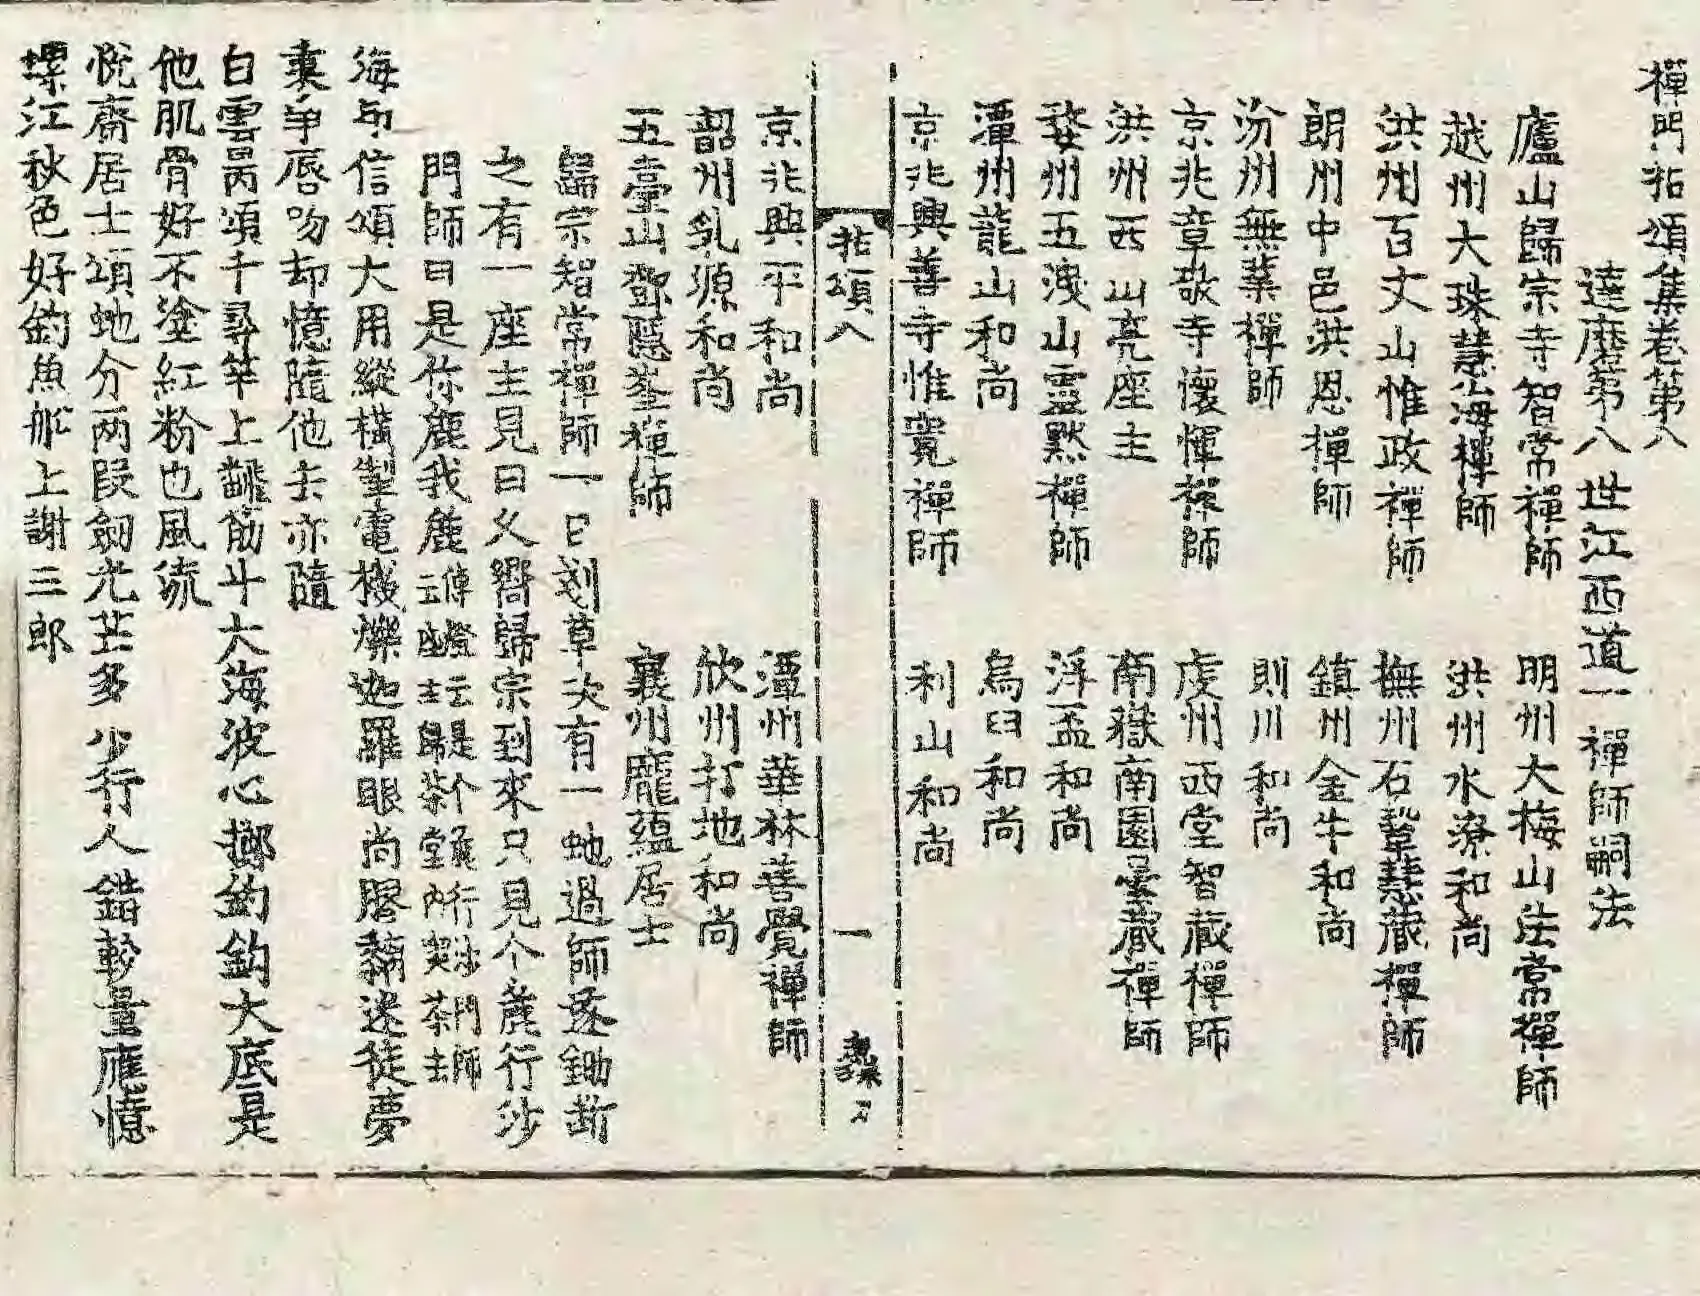 禪門拈頌集卷第八
達磨第八世江西道一禪師嗣法
廬山歸宗寺智常禪師 明州大梅山法常禪師
越州大珠慧海禪師 洪州水潦和尚
洪州百丈山惟政禪師 撫州石鞏慧藏禪師
朗州中邑洪恩禪師 鎮州金牛和尚
汾州無業禪師 則川和尚
京兆章敬寺懷惲禪師 虔州西堂智藏禪師
洪州西山亮座主 南嶽南園曇藏禪師
婺州五洩山靈黙禪師 浮盃和尚
潭州龍山和尚 烏臼和尚
京兆興善寺惟寬禪師 利山和尚
拈頌八 一
京兆興平和尚 潭州華林善覺禪師
韶州乳源和尚 欣州打地和尚
五臺山鄧隱峯禪師 襄州龐蘊居士
歸宗智常禪師一日剗草次有一虵過師遂鋤断
之有一座主見曰乆嚮歸宗到來只見个麁行沙
門師曰是你麁我麁
傳燈云是个麁行沙門師
云座主歸茶堂內喫茶去
海印信頌大用縱橫掣電機爍迦羅眼尚膠黐迷徒夢
裏爭唇吻却憶隨他去亦隨
白雲昺頌千尋竿上飜筋斗大海波心擲釣鈎大底是
他肌骨好不塗紅粉也風流
悅齋居士頌虵分两段劒光芒多少行人錯較量應憶
螺江秋色好釣魚舩上謝三郎